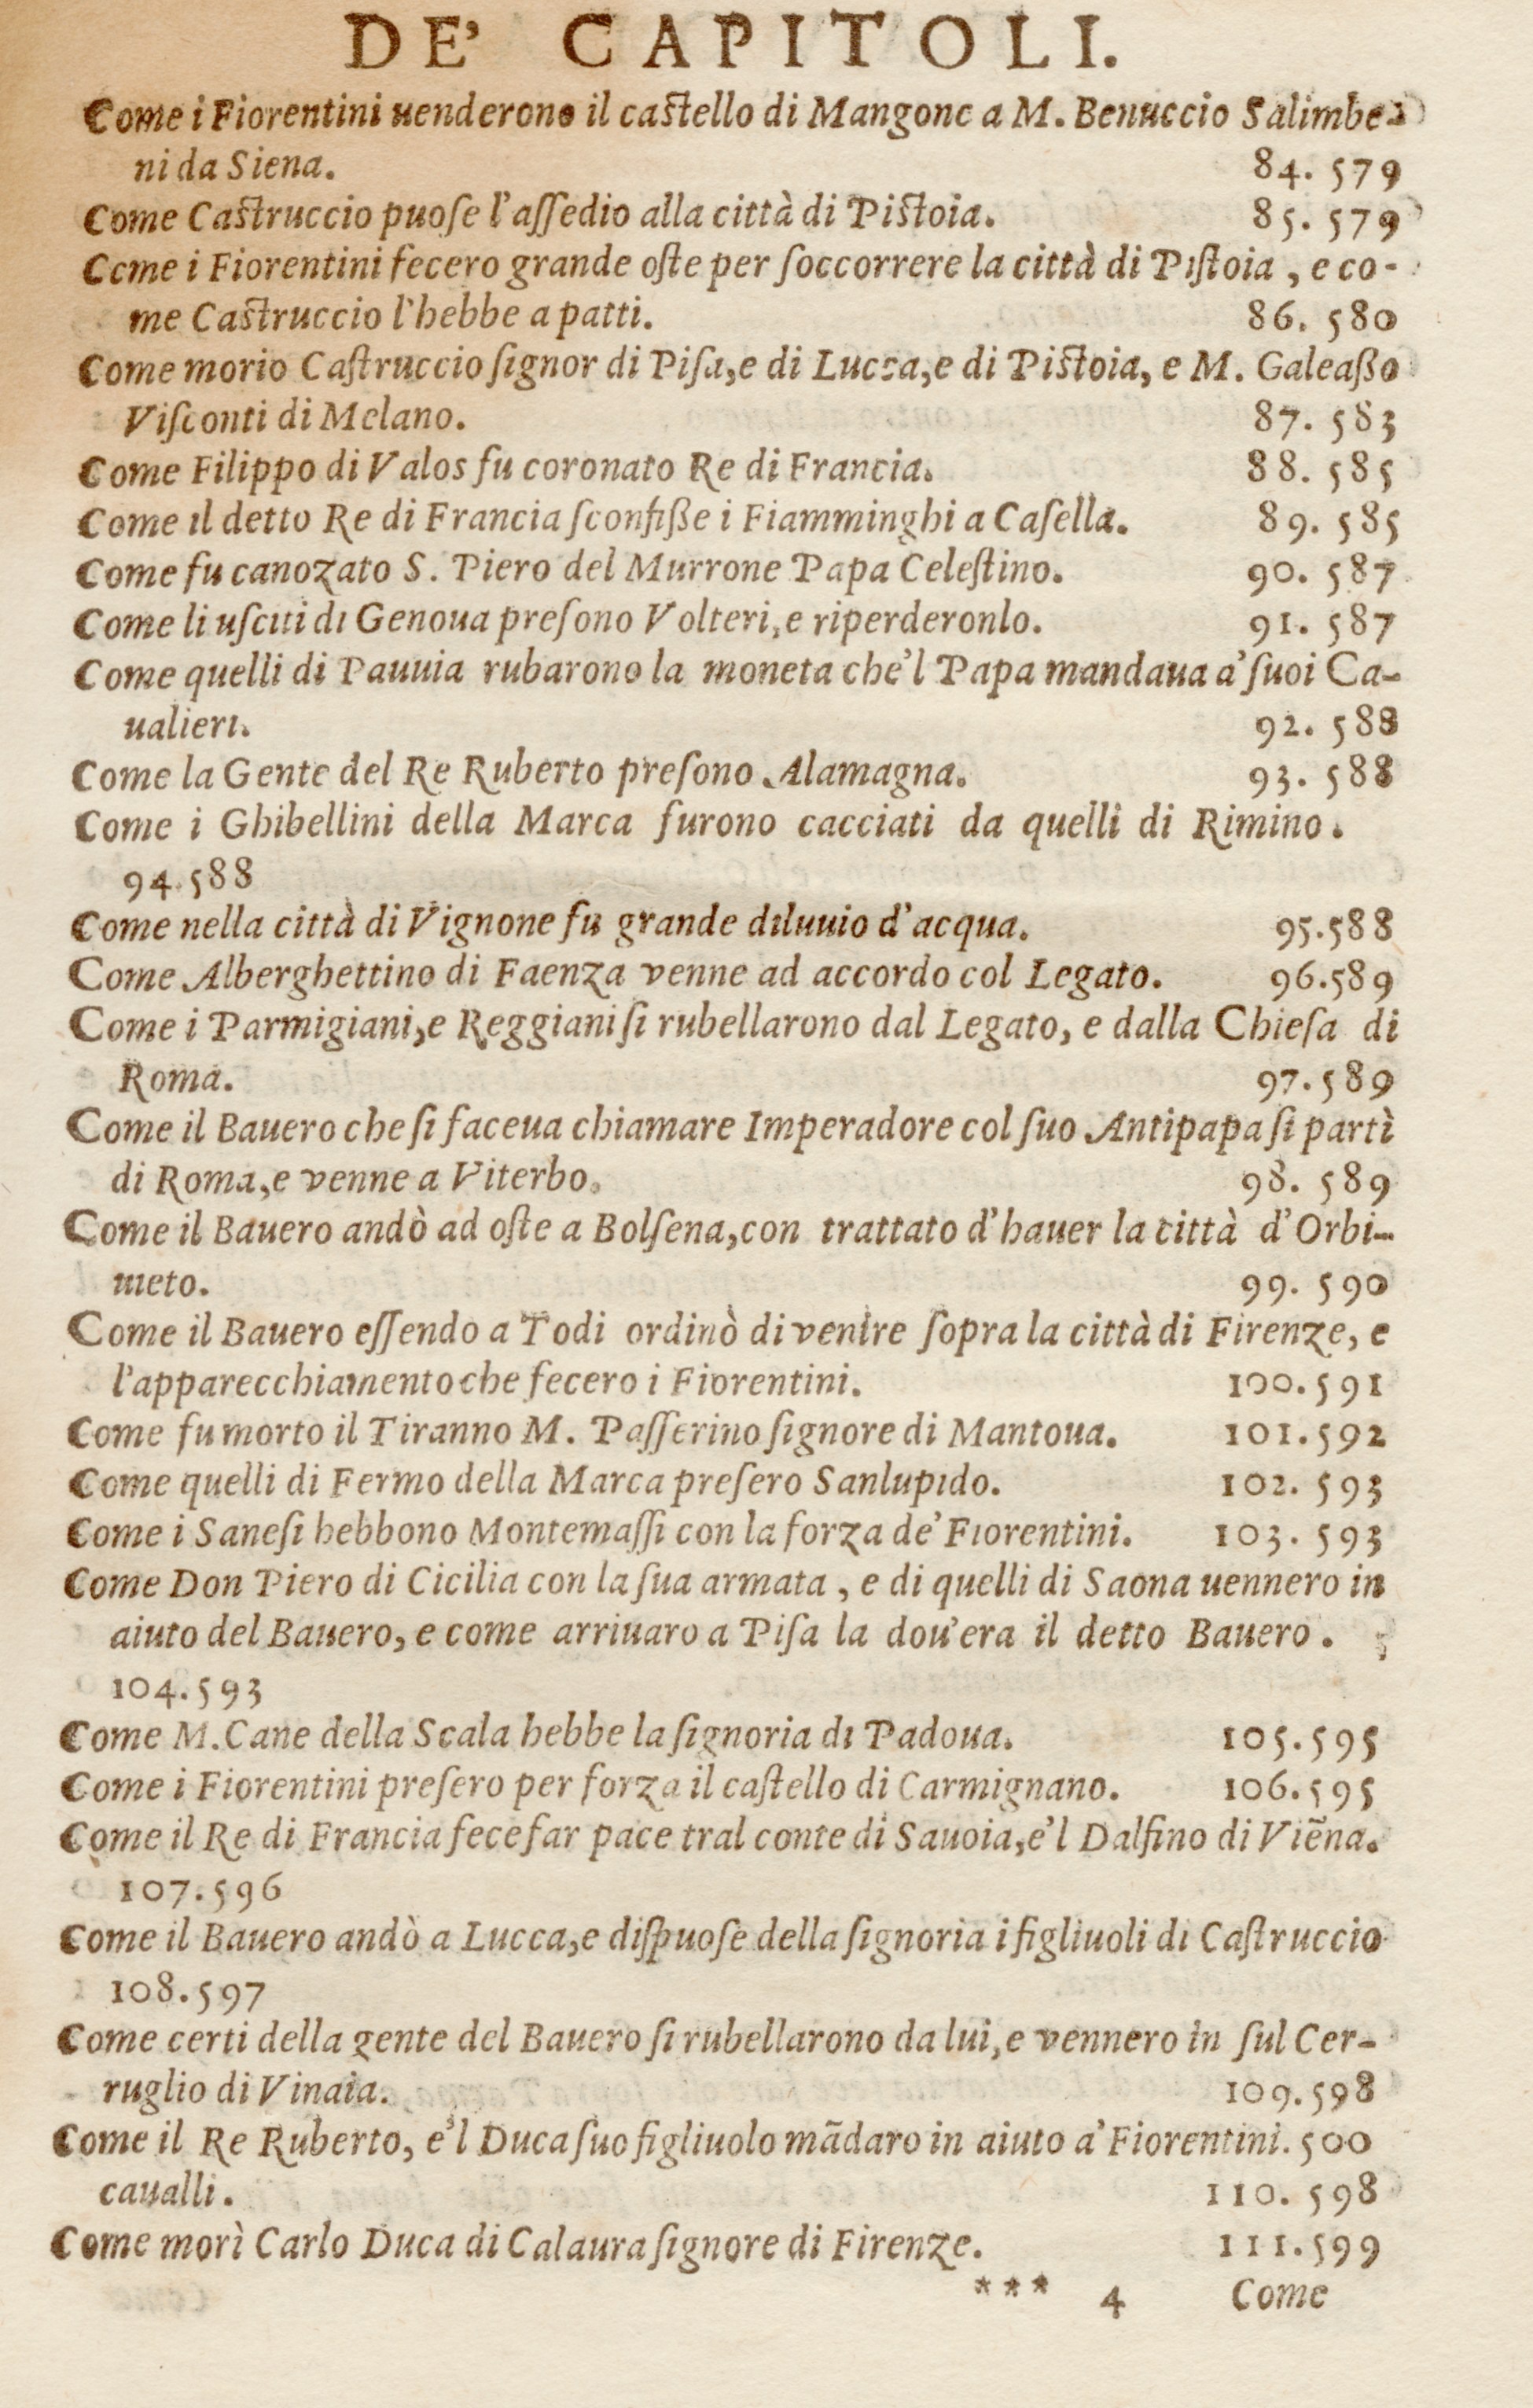 DE' CAPITOLI.
Come i Fiorentini uenderono il castello di Mangone a M. Benuccio Salimbe-
ni da Siena. 84. 579
Come Castruccio puose l'assedio alla città di Pistoia. 85. 579
Come i Fiorentini fecero grande oste per soccorrere la città di Pistoia, e co-
me Castruccio l'hebbe a patti. 86. 580
Come morio Castruccio signor di Pisa, e di Lucca, e di Pistoia, e M. Galeaßo
Visconti di Melano. 87. 583
Come Filippo di Valos fu coronato Re di Francia. 88. 585
Come il detto Re di Francia sconfiße i Fiamminghi a Casella. 89. 585
Come fu canozato S. Piero del Murrone Papa Celestino. 90. 587
Come li usciti di Genoua presono Volteri, e riperderonlo. 91. 587
Come quelli di Pauuia rubarono la moneta che'l Papa mandaua a' suoi Ca-
ualieri. 92. 588
Come la Gente del Re Ruberto presono Alamagna. 93. 588
Come i Ghibellini della Marca furono cacciati da quelli di Rimino.
94.588
Come nella città di Vignone fu grande diluuio d'acqua. 95.588
Come Alberghettino di Faenza venne ad accordo col Legato. 96.589
Come i Parmigiani, e Reggiani si rubellarono dal Legato, e dalla Chiesa di
Roma. 97.589
Come il Bauero che si faceua chiamare Imperadore col suo Antipapa si partì
di Roma, e venne a Viterbo. 98. 589
Come il Bauero andò ad oste a Bolsena, con trattato d'hauer la città d'Orbi-
uieto. 99. 590
Come il Bauero essendo a Todi ordinò di venire sopra la città di Firenze, e
l'apparecchiamento che fecero i Fiorentini. 100.591
Come fu morto il Tiranno M. Passerino signore di Mantoua. 101.592
Come quelli di Fermo della Marca presero Sanlupido. 102. 593
Come i Sanesi hebbono Montemassi con la forza de' Fiorentini. 103. 593
Come Don Piero di Cicilia con la sua armata, e di quelli di Saona uennero in
aiuto del Bauero, e come arriuaro a Pisa la dou'era il detto Bauero.
104.593
Come M. Cane della Scala hebbe la signoria di Padoua. 105.595
Come i Fiorentini presero per forza il castello di Carmignano. 106.595
Come il Re di Francia fece far pace tral conte di Sauoia, e'l Dalfino di Viēna.
107.596
Come il Bauero andò a Lucca, e dispuose della signoria i figliuoli di Castruccio
108.597
Come certi della gente del Bauero si rubellarono da lui, e vennero in sul Cer-
ruglio di Vinaia. 109.598
Come il Re Ruberto, e'l Duca suo figliuolo mādaro in aiuto a' Fiorentini. 500
caualli. 110. 598
Come morì Carlo Duca di Calaura signore di Firenze. 111.599
*** 4 Come